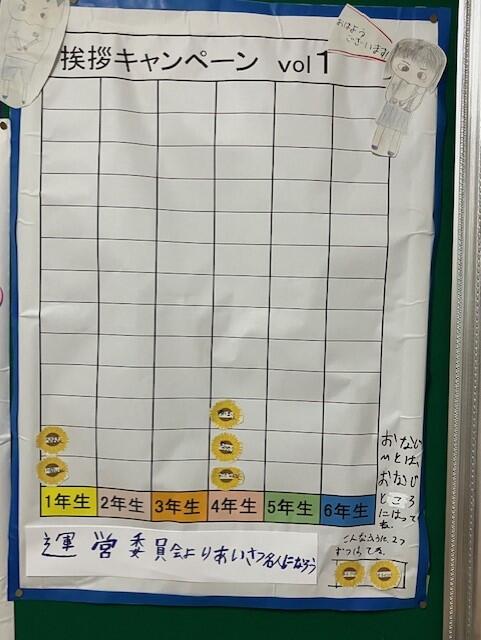 挨拶キャンペーン vol 1
おはよう
ございます!
1年生 2年生 3年生 4年生 5年生 6年生
運営委員会よりあいさつ名人になろう
おなじ
おなじ
ところ
にはって
ね。
こんなふうに、2つ
ずつはってね。